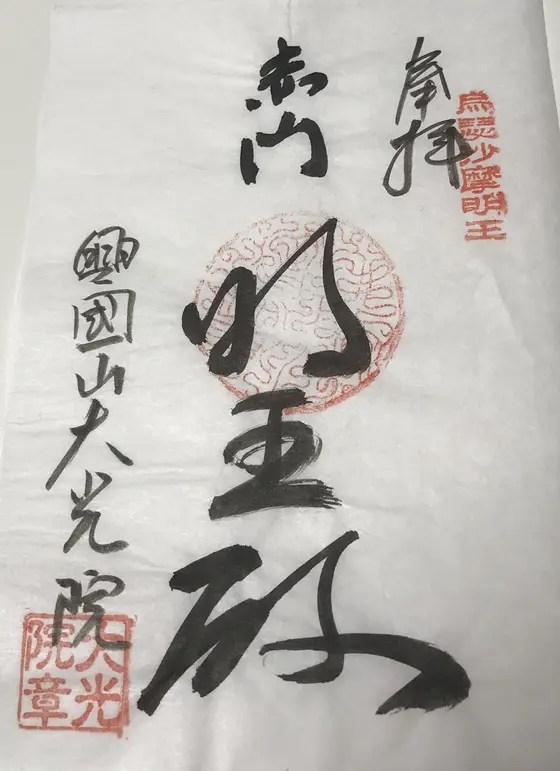 烏瑟沙摩明王
奉拝
赤門
明王殿
興國山大光院
大光院章